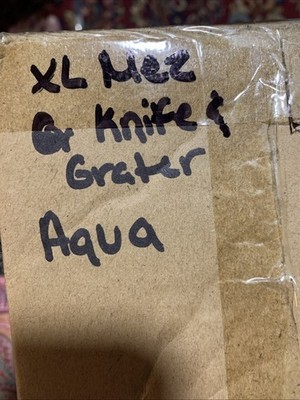 XL Mez
Gr Knife &
Grater
Aqua